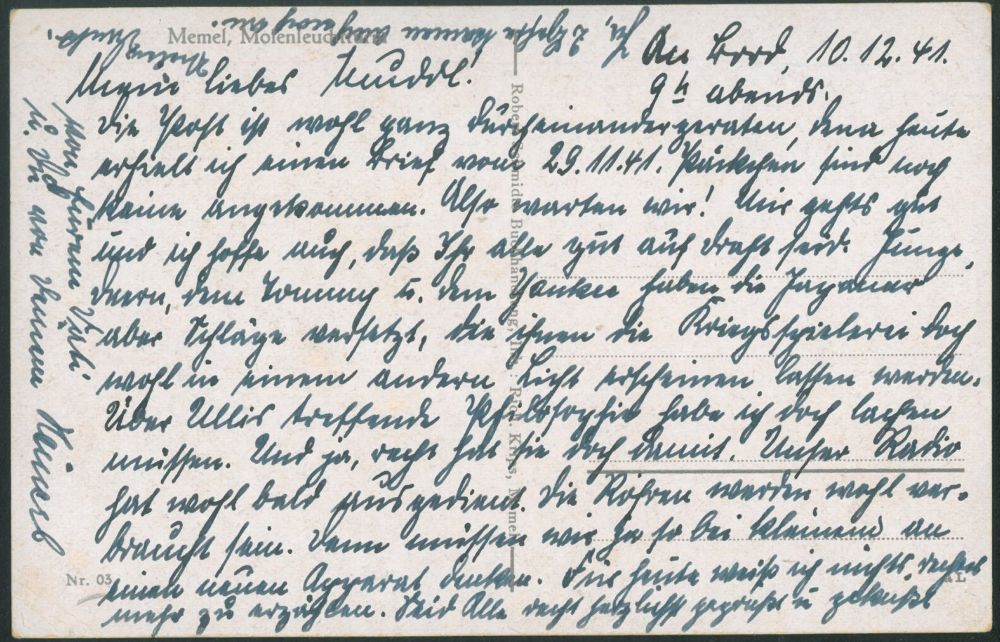 Memel, Molenleuchtturm
An Bord, 10.12.41.
9 h abends.
Mein liebes Muddl!
Die Post ist wohl ganz durcheinandergeraten, denn heute
erhielt ich einen Brief vom 29.11.41. Päckchen sind noch
keine angekommen. Also warten wir! Mir gehts gut
und ich hoffe auch, daß Ihr alle gut auf Draht seid. Junge,
dem Tommy u. dem Yankee haben die Japaner
aber Schläge versetzt, die ihnen die Kriegsspielerei doch
wohl in einem andern Licht erscheinen lassen werden.
Über Ullis treffende Philosophie habe ich doch lachen
müssen. Und ja, recht hat sie doch damit. Unser Radio
hat wohl bald ausgedient. Die Röhren werden wohl ver-
braucht sein. Dann müssen wir ja so bei kleinem an
einen neuen Apparat denken. Für heute weiß ich nichts rechtes
mehr zu erzählen. Seid Alle recht herzlichst gegrüßt u geküßt
von Eurem Vati.
u. Du von Deinem
Robert Schmidts Buchhandlung, Memel
Nr. 03